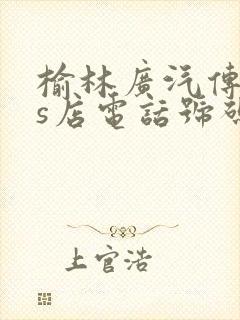 榆林廣汽傳
s店電話號碼
上官浩